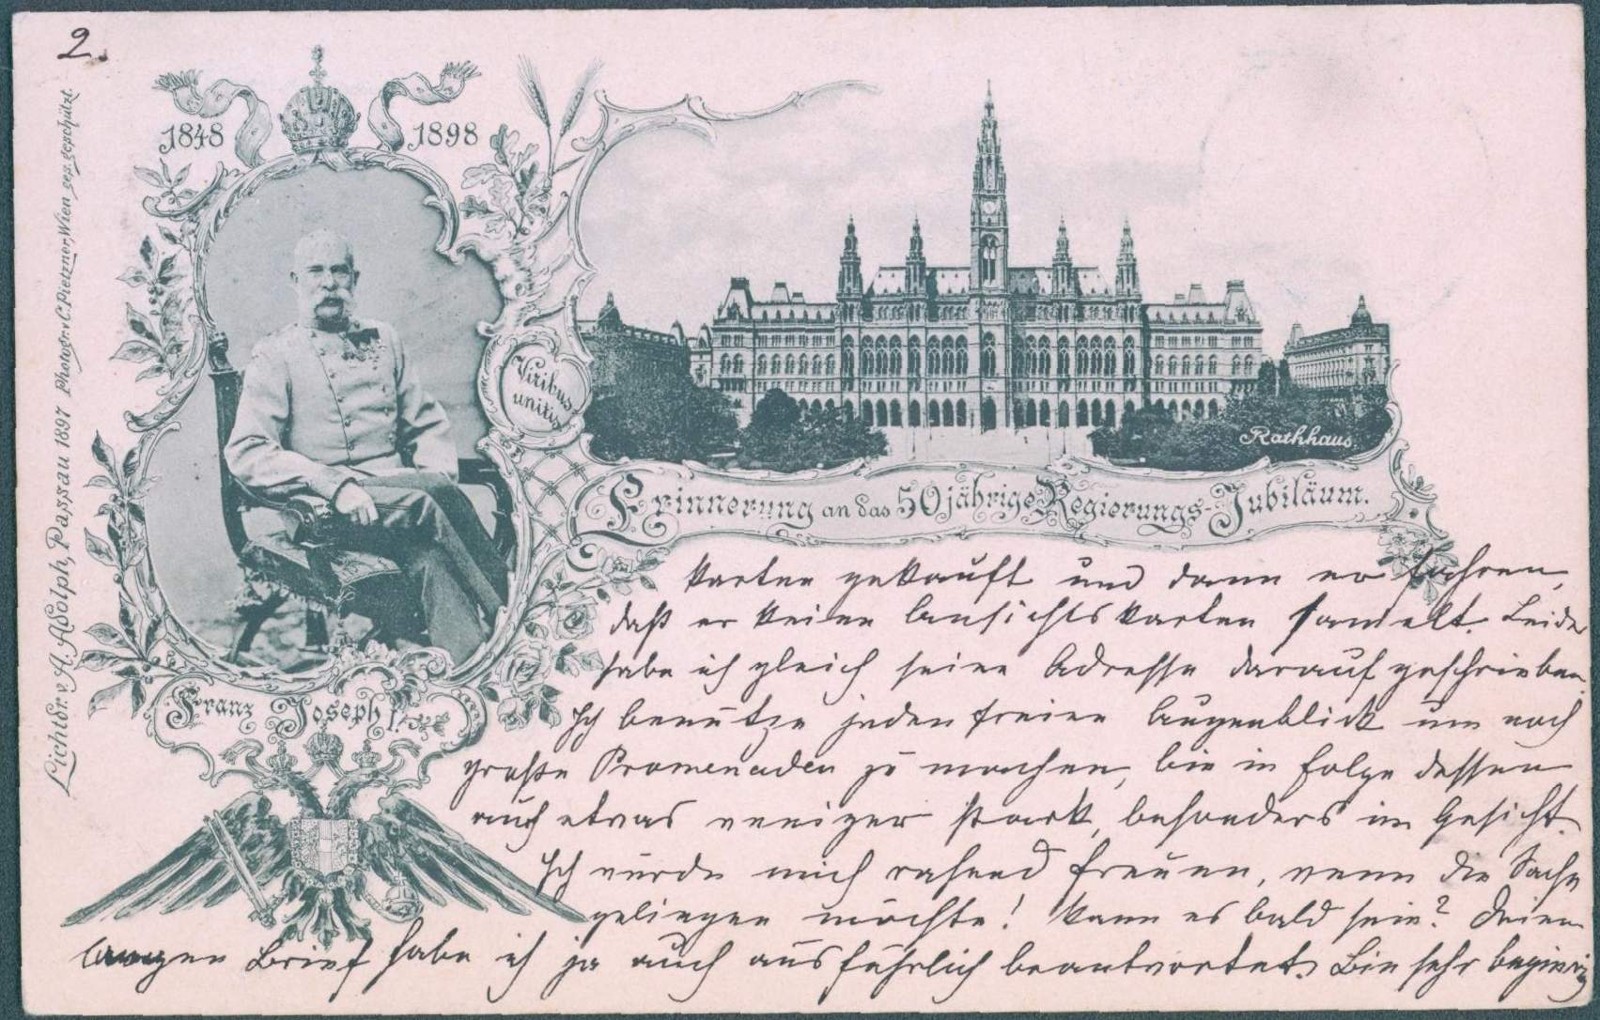 2.
1848
1898
Lichtdr. v. A. Adolph, Passau 1897 Photogr. v. C. Pietzner, Wien ges. geschützt.
Viribus
unitis
Rathhaus
Erinnerung an das 50jährige Regierungs-Jubiläum.
Franz Joseph I.
Karten gekauft und dann erfahren,
daß er keine Ansichtskarten sammelt. Leider
habe ich gleich seine Adresse darauf geschrieben.
Ich benütze jeden freien Augenblick um noch
große Promenaden zu machen, bin in folge dessen
auch etwas weniger stark, besonders im Gesicht.
Ich würde mich rasend freuen, wenn die Sache
gelingen möchte! Kann es bald sein? Deinen
langen Brief habe ich ja auch ausführlich beantwortet. Bin sehr begierig